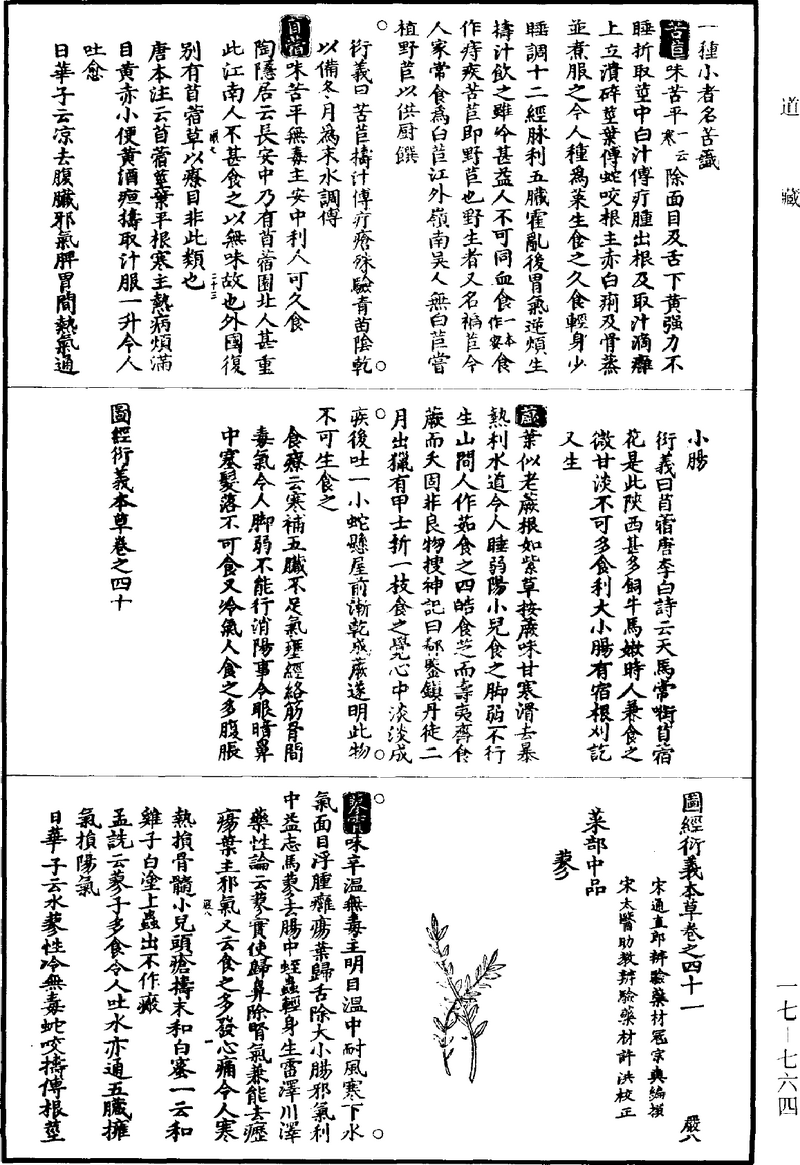 道藏
一種小者名苦蘵
苦苣味苦平一云寒除面目及舌下黃强力不
睡折取莖中白汁傅疔腫出根及取汁滴癰
上立潰碎莖葉傅蛇咬根主赤白痢及骨蒸
並煮服之令人種為菜生食之久食輕身少
睡調十二經脉利五臟霍亂後胃氣逆煩生
擣汁飲之雖冷甚益人不可同血食一本作蜜食
作痔疾苦苣即野苣也野生者又名褊苣今
人家常食為白苣江外嶺南吳人無白苣嘗
植野苣以供厨饌
衍義曰苦苣擣汁傅疔瘡殊驗青苗陰乾
以備冬月為末水調傅
苜蓿味苦平無毒主安中利人可久食
陶隱居云長安中乃有苜蓿園北人甚重
此江南人不甚食之以無味故也外國復
別有苜蓿草以療目非此類也
唐本注云苜蓿莖葉平根寒主熱病煩滿
目黃赤小便黃酒疸擣取汁服一升令人
吐愈
日華子云凉去腹臟邪氣脾胃間熱氣通
小腸
衍義曰苜蓿唐李白詩云天馬常衘苜蓿
花是此陝西甚多飼牛馬嫩時人兼食之
微甘淡不可多食利大小腸有宿根刈訖
又生
蕨葉似老蕨根如紫草按蕨味甘寒滑去暴
熱利水道令人睡弱陽小兒食之脚弱不行
生山間人作茹食之四皓食芝而壽夷齊食
蕨而夭固非良物搜神記曰郗鑒鎮丹徒二
月出獵有甲士折一枝食之覺心中淡淡成
疾後吐一小蛇懸屋前漸乾成蕨遂明此物
不可生食之
食療云寒補五臟不足氣壅經絡筋骨間
毒氣令人脚弱不能行消陽事令眼暗鼻
中塞髮落不可食又冷氣人食之多腹脹
圖經衍義本草卷之四十
圖經衍義本草卷之四十一 嚴八
宋通直郎辨驗藥材寇宗奭編撰
宋太醫助教辨驗藥材許洪校正
菜部中品
蓼
蓼實味辛温無毒主明目温中耐風寒下水
氣面目浮腫癰瘍葉歸舌除大小腸邪氣利
中益志馬蓼去腸中蛭蟲輕身生雷澤川澤
藥性論云蓼實使歸鼻除腎氣兼能去癧
瘍葉主邪氣又云食之多發心痛令人寒
熱損骨髓小兒頭瘡擣末和白蜜一云和
雞子白塗上蟲出不作瘢
孟詵云蓼子多食令人吐水亦通五臟擁
氣損陽氣
日華子云水蓼性冷無毒蛇咬擣傅根莖
一七－七六四